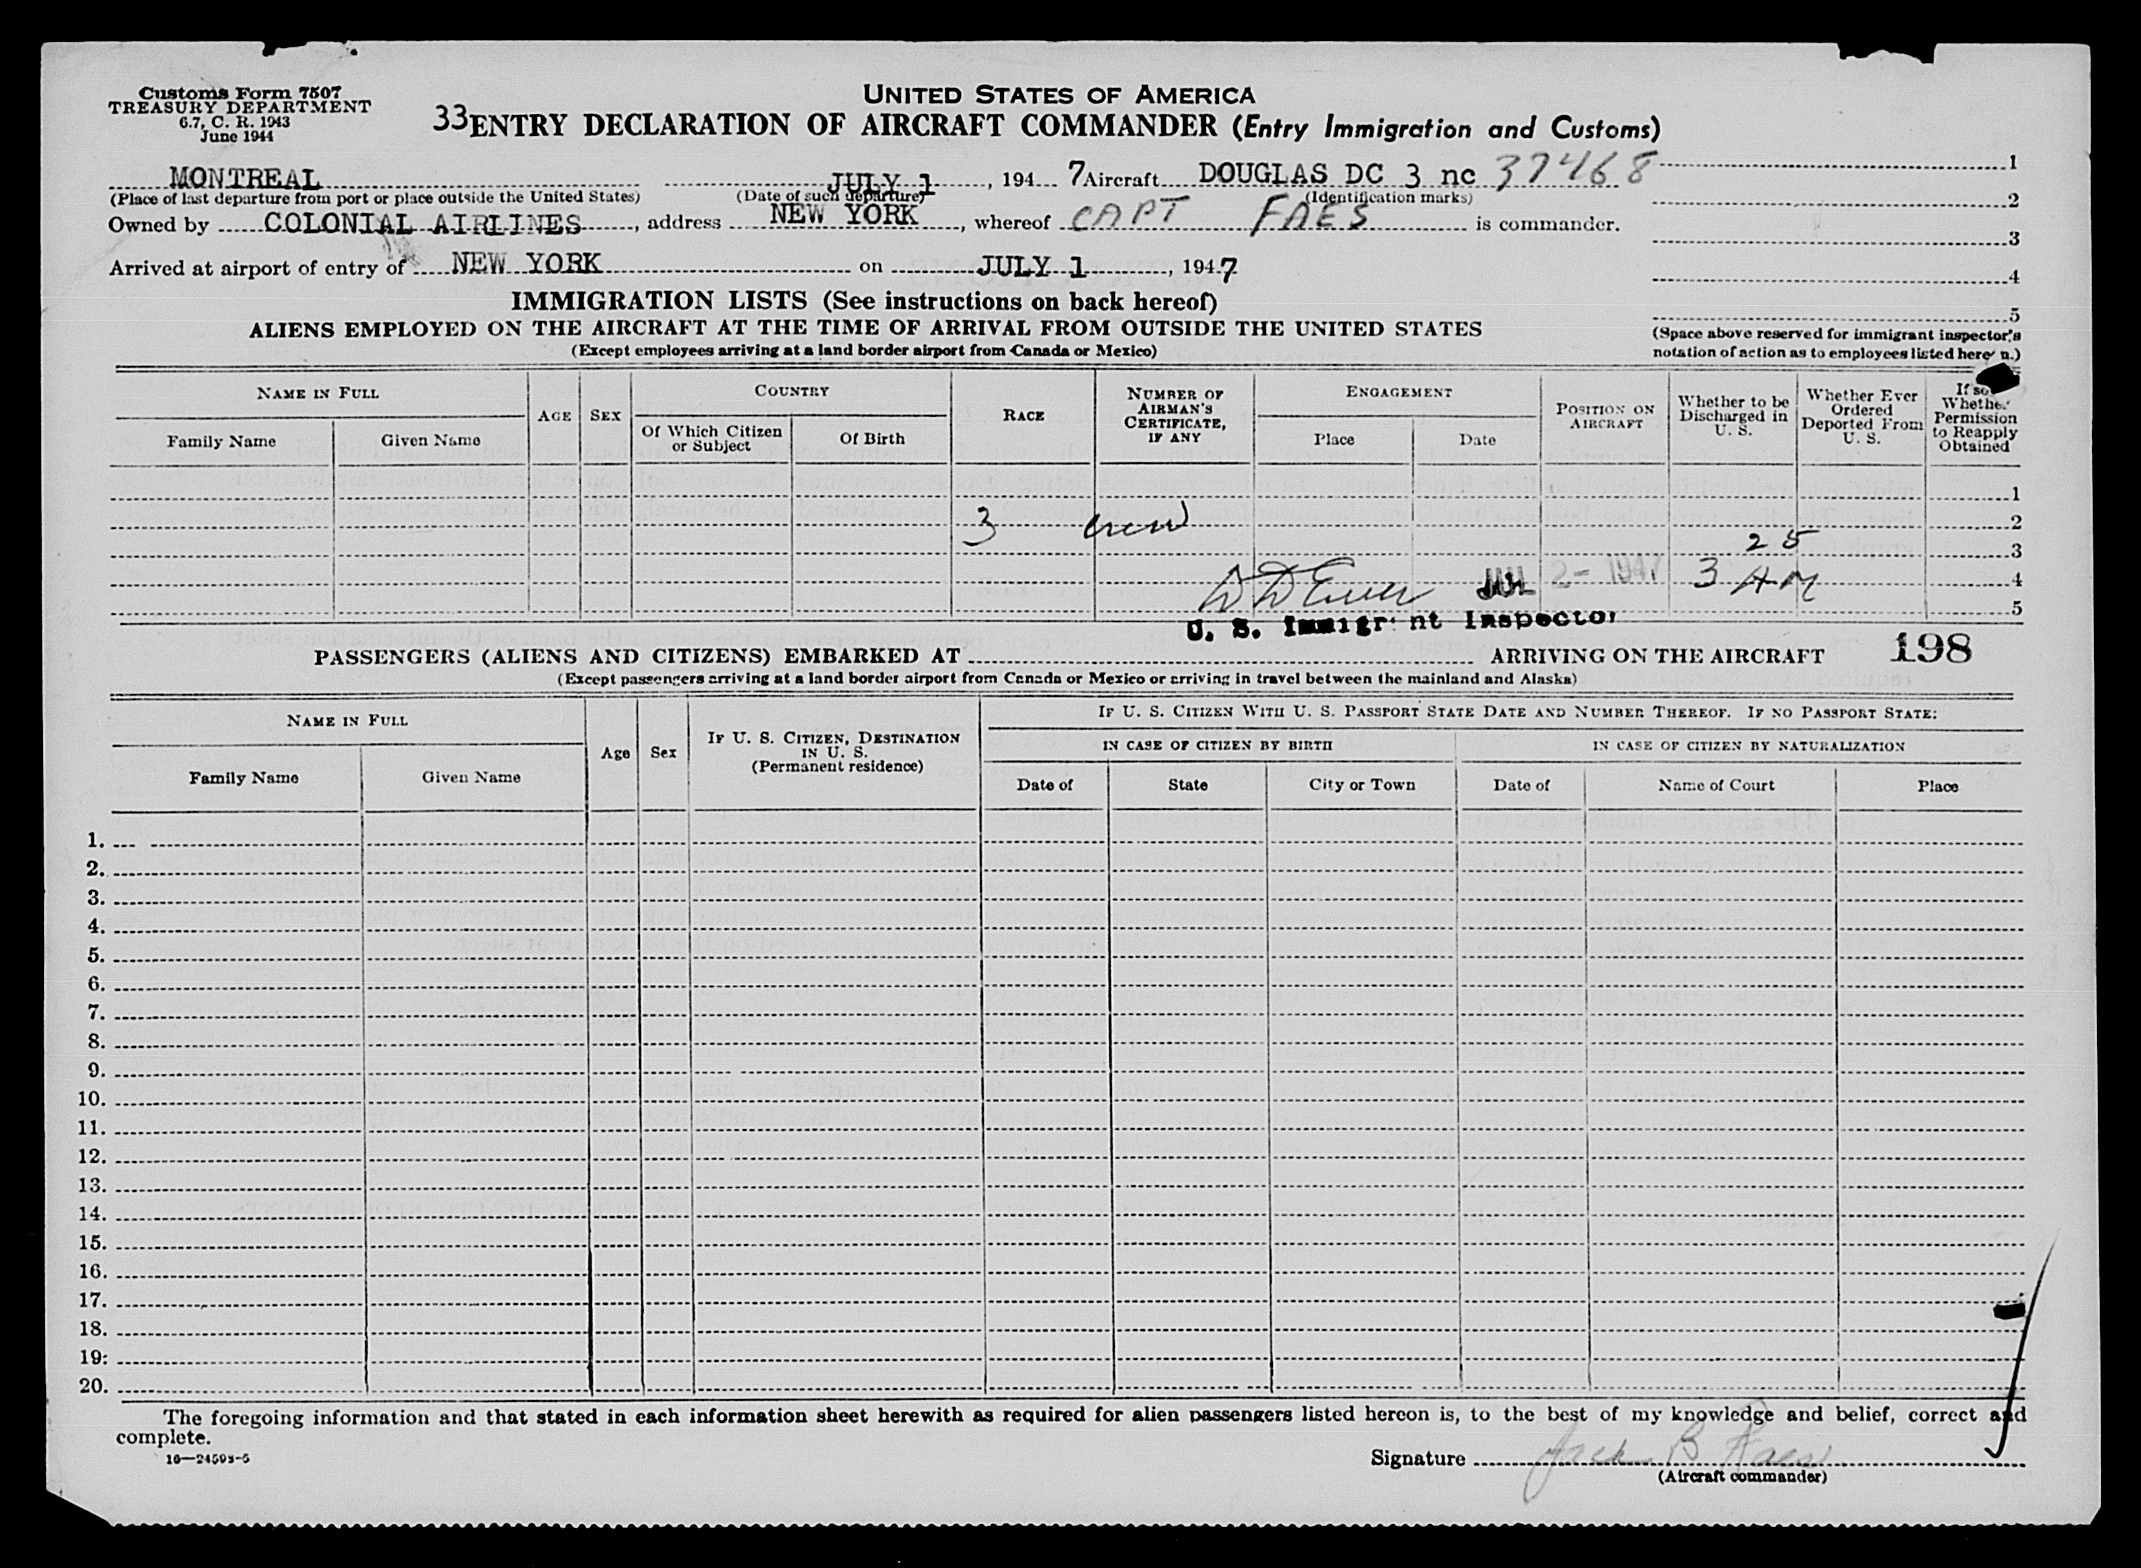 Customs Form 7507
TREASURY DEPARTMENT
6.7, C. R. 1943
June 1944
UNITED STATES OF AMERICA
33 ENTRY DECLARATION OF AIRCRAFT COMMANDER (Entry Immigration and Customs)
MONTREAL JULY 1, 1947 Aircraft DOUGLAS DC 3 nc 37468
(Place of last departure from port or place outside the United States) (Date of such departure) (Identification marks)
Owned by COLONIAL AIRLINES, address NEW YORK, whereof CAPT FAES is commander.
Arrived at airport of entry of NEW YORK on JULY 1, 1947
1
2
3
4
5
(Space above reserved for immigrant inspector's
notation of action as to employees listed here n.)
IMMIGRATION LISTS (See instructions on back hereof)
ALIENS EMPLOYED ON THE AIRCRAFT AT THE TIME OF ARRIVAL FROM OUTSIDE THE UNITED STATES
(Except employees arriving at a land border airport from Canada or Mexico)
NAME IN FULL
Family Name
Given Name
AGE
SEX
COUNTRY
Of Which Citizen
or Subject
Of Birth
RACE
NUMBER OF
AIRMAN'S
CERTIFICATE,
IF ANY
ENGAGEMENT
Place
Date
POSITION ON
AIRCRAFT
Whether to be
Discharged in
U. S.
Whether Ever
Ordered
Deported From
U. S.
If so
Whether
Permission
to Reapply
Obtained
1
3 crew 2
25 3
JUL 2- 1947 3 AM 4
5
U. S. Immigrant Inspector
PASSENGERS (ALIENS AND CITIZENS) EMBARKED AT ARRIVING ON THE AIRCRAFT 198
(Except passengers arriving at a land border airport from Canada or Mexico or arriving in travel between the mainland and Alaska)
NAME IN FULL
Family Name
Given Name
Age
Sex
IF U. S. CITIZEN, DESTINATION
IN U. S.
(Permanent residence)
IF U. S. CITIZEN WITH U. S. PASSPORT STATE DATE AND NUMBER THEREOF. IF NO PASSPORT STATE:
IN CASE OF CITIZEN BY BIRTH
IN CASE OF CITIZEN BY NATURALIZATION
Date of
State
City or Town
Date of
Name of Court
Place
1.
2.
3.
4.
5.
6.
7.
8.
9.
10.
11.
12.
13.
14.
15.
16.
17.
18.
19.
20.
The foregoing information and that stated in each information sheet herewith as required for alien passengers listed hereon is, to the best of my knowledge and belief, correct and
complete.
16—24593-5
Signature Jack B Faes
(Aircraft commander)